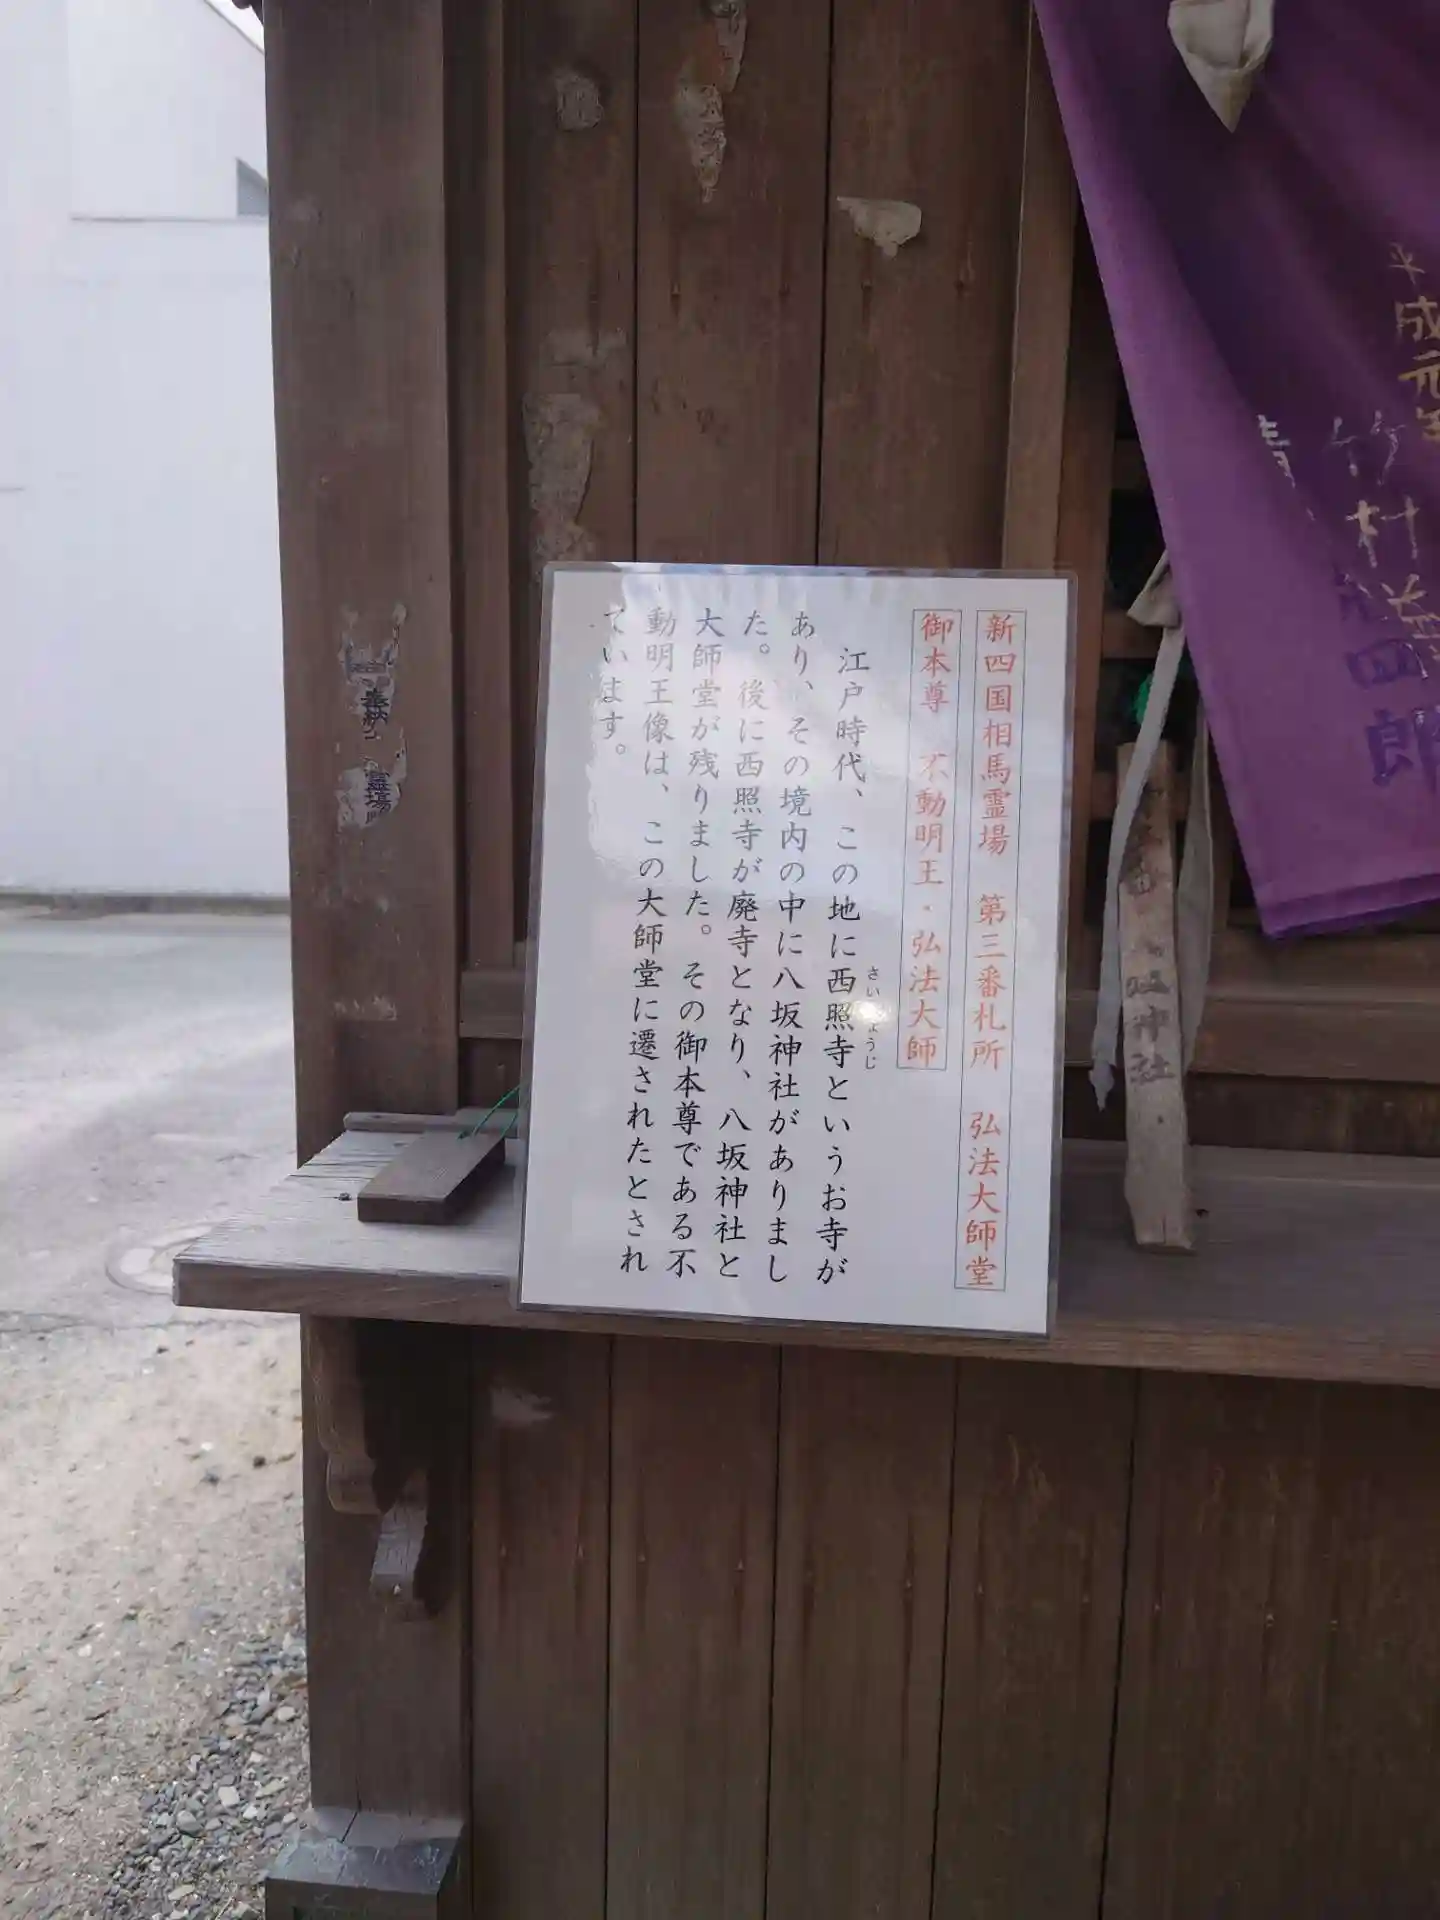 新四国相馬霊場　第三番札所　弘法大師堂
御本尊　不動明王・弘法大師
江戸時代、この地に西照寺というお寺が
さいしょうじ
あり、その境内の中に八坂神社がありまし
た。後に西照寺が廃寺となり、八坂神社と
大師堂が残りました。その御本尊である不
動明王像は、この大師堂に遷されたとされ
ています。
平成元年
竹村益
四郎
神社
奉納
霊場